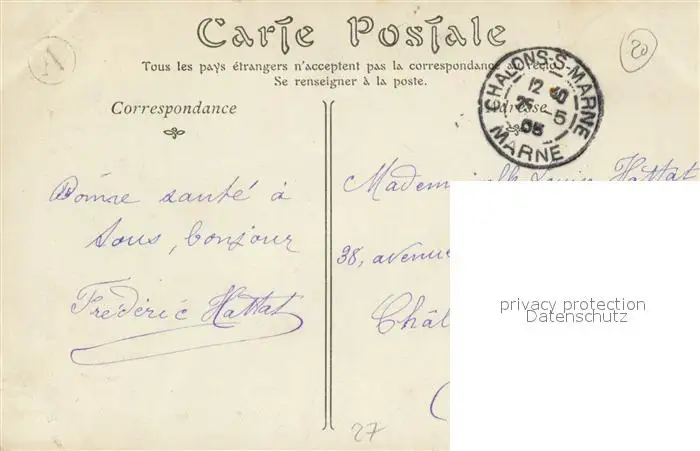 A
Carte Postale
20
Tous les pays étrangers n'acceptent pas la correspondance au recto
Se renseigner à la poste.
CHALONS-S-MARNE
12
25 - 5
05
MARNE
Correspondance
Adresse
Bonne santé à
tous, bonjour
Frédéric Hattat
Mademoiselle Hattat
38, avenue
Châl
privacy protection
Datenschutz
27